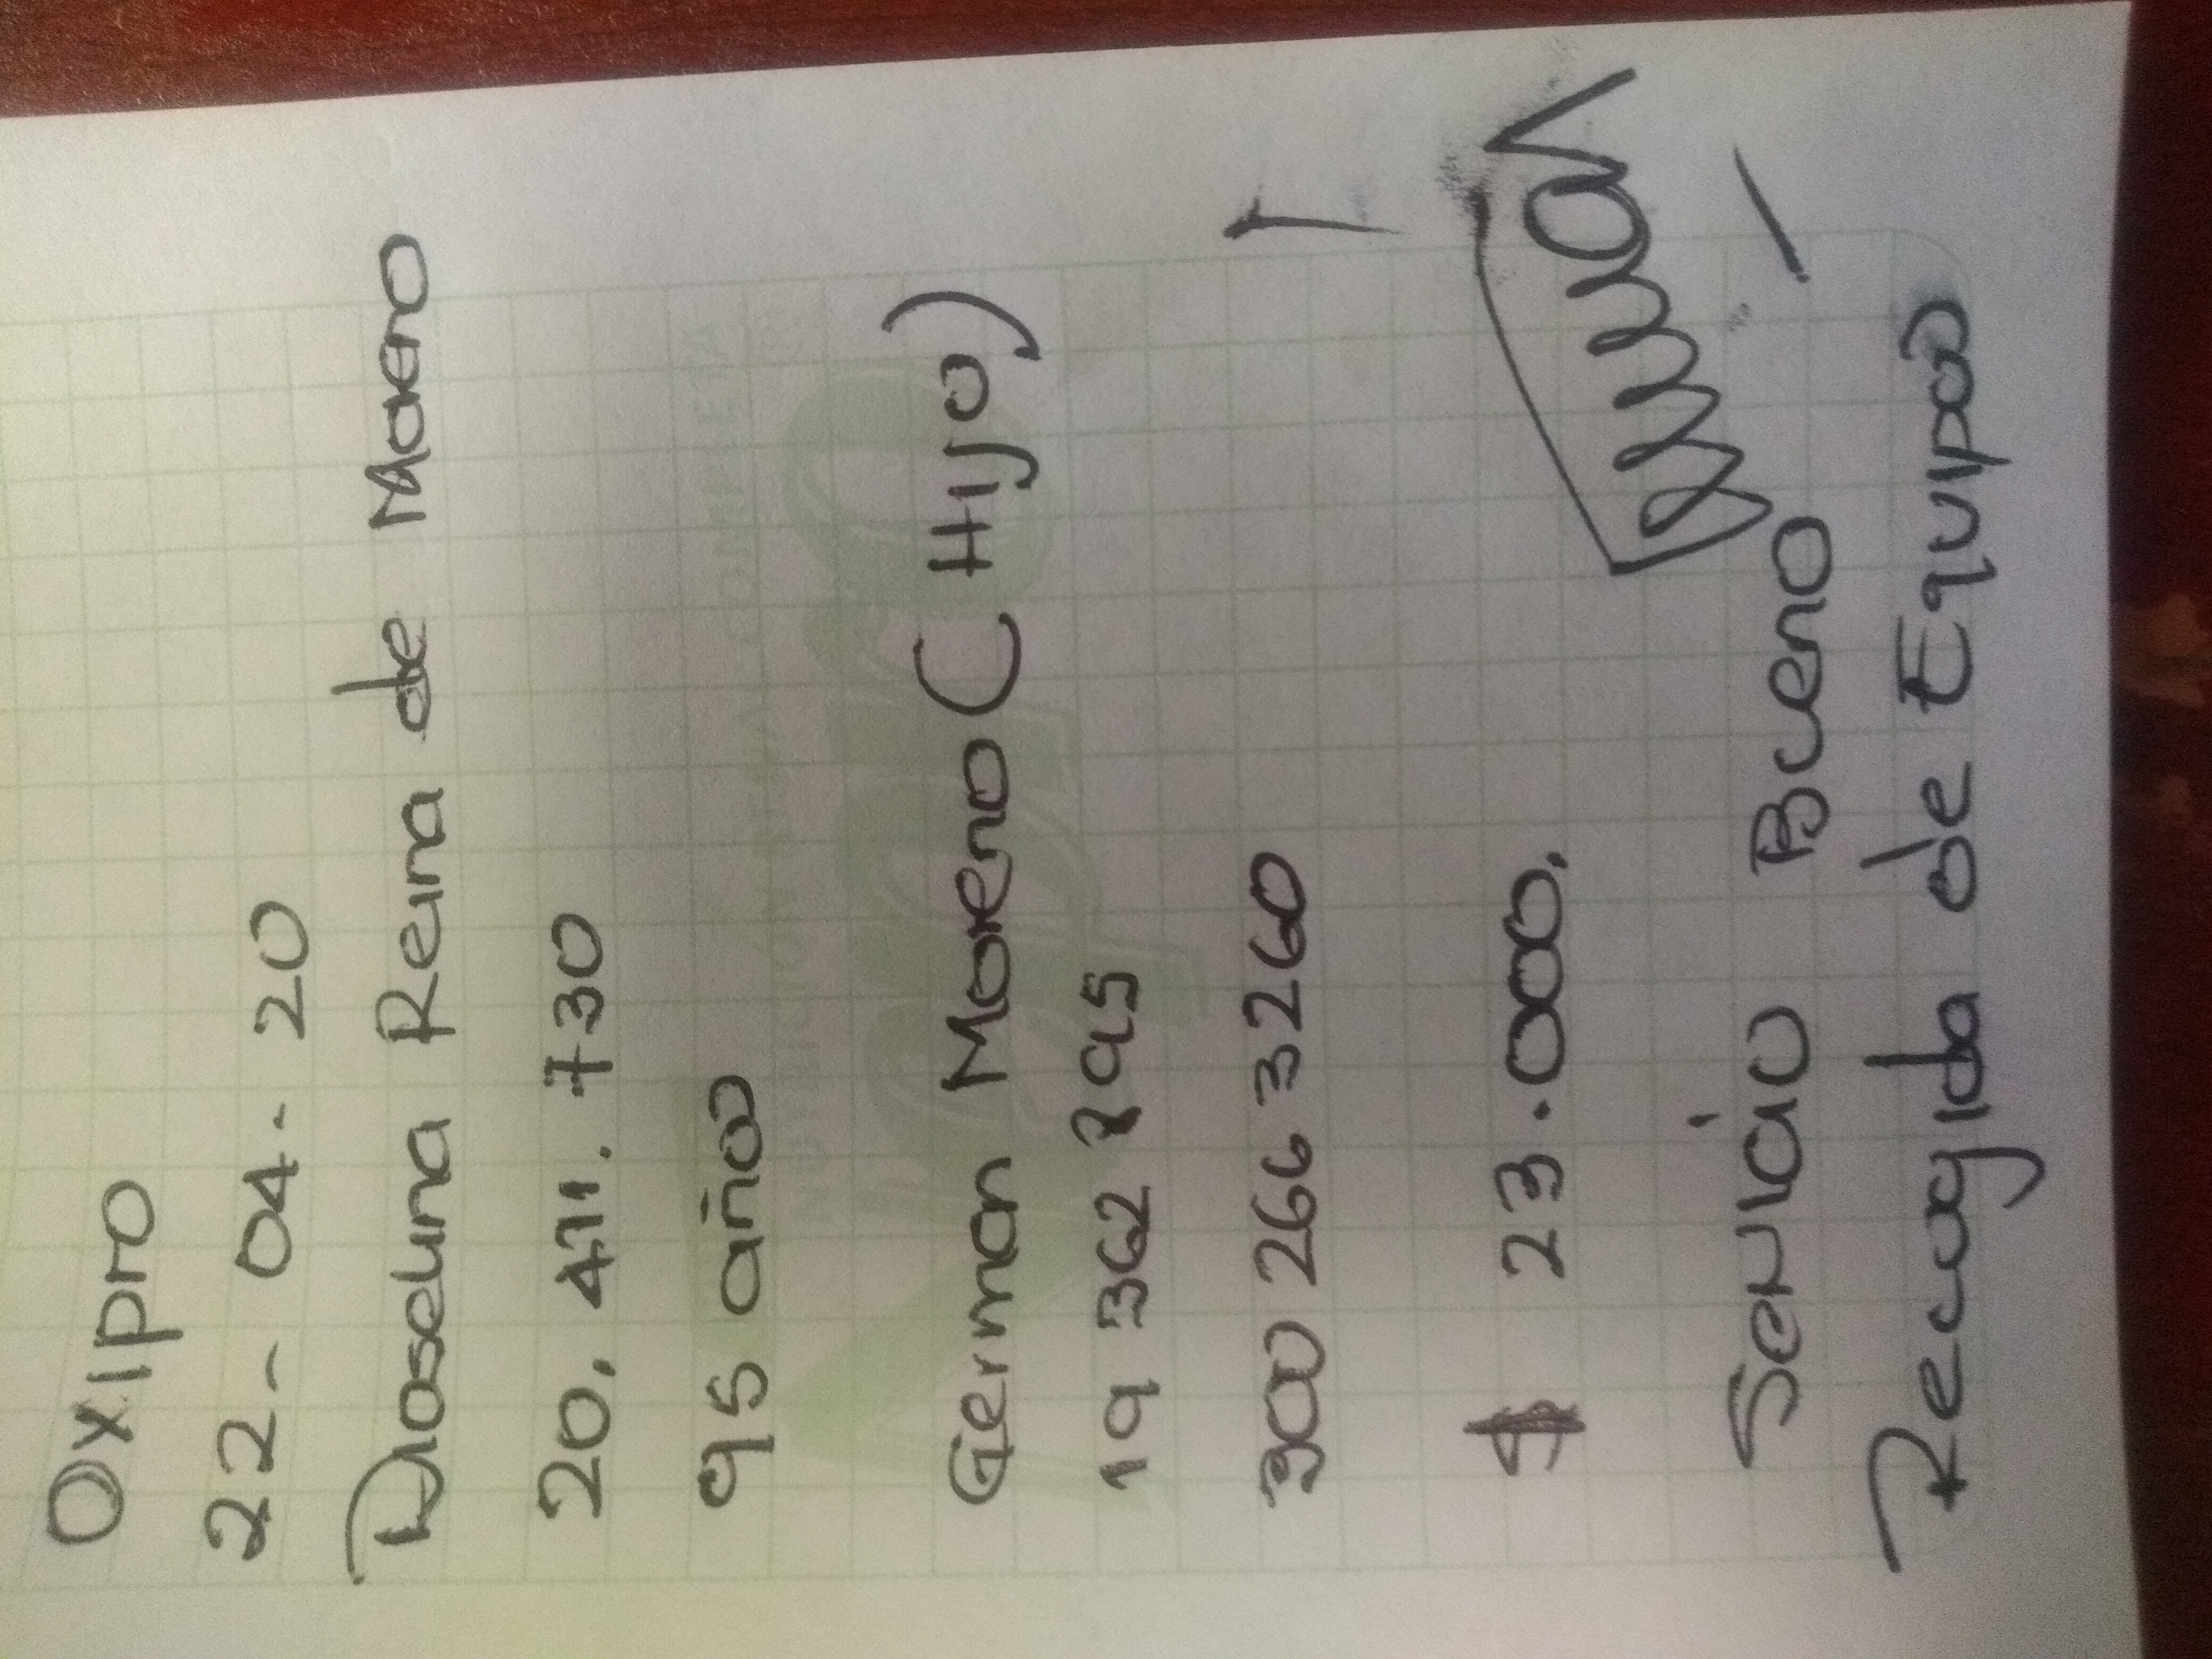 Oxipro
22 - 04 - 20
Dioselina Reina de Moreno
20. 411. 730
95 años
German Moreno (Hijo)
19 362 895
300 266 3260
$ 23.000.
Servicio Bueno
Recogida de Equipos